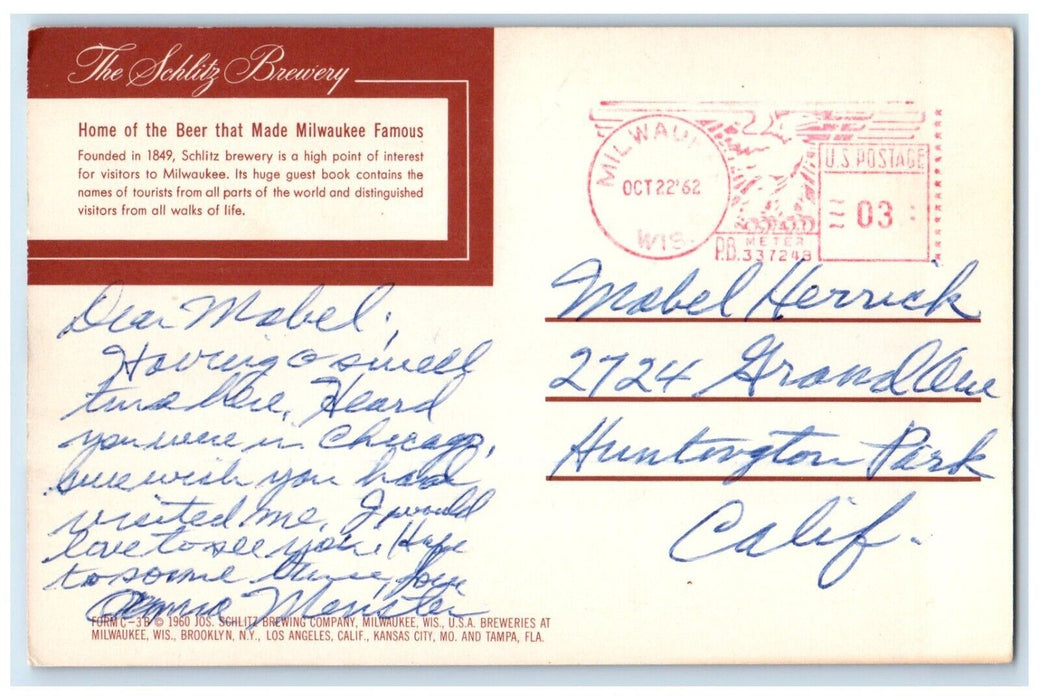 The Schlitz Brewery
Home of the Beer that Made Milwaukee Famous
Founded in 1849, Schlitz brewery is a high point of interest
for visitors to Milwaukee. Its huge guest book contains the
names of tourists from all parts of the world and distinguished
visitors from all walks of life.
MILWAUK
OCT 22 '62
WIS.
U.S. POSTAGE
03
P.B. METER
337248
Dear Mabel,
Having a swell
time here. Heard
you were in Chicago,
sure wish you had
visited me. I would
love to see you. Hope
to some time, love
Anna Menster
Mabel Herrick
2724 Grand Ave
Huntington Park
Calif.
FORM C-3B © 1960 JOS. SCHLITZ BREWING COMPANY, MILWAUKEE, WIS., U.S.A. BREWERIES AT
MILWAUKEE, WIS., BROOKLYN, N.Y., LOS ANGELES, CALIF., KANSAS CITY, MO. AND TAMPA, FLA.